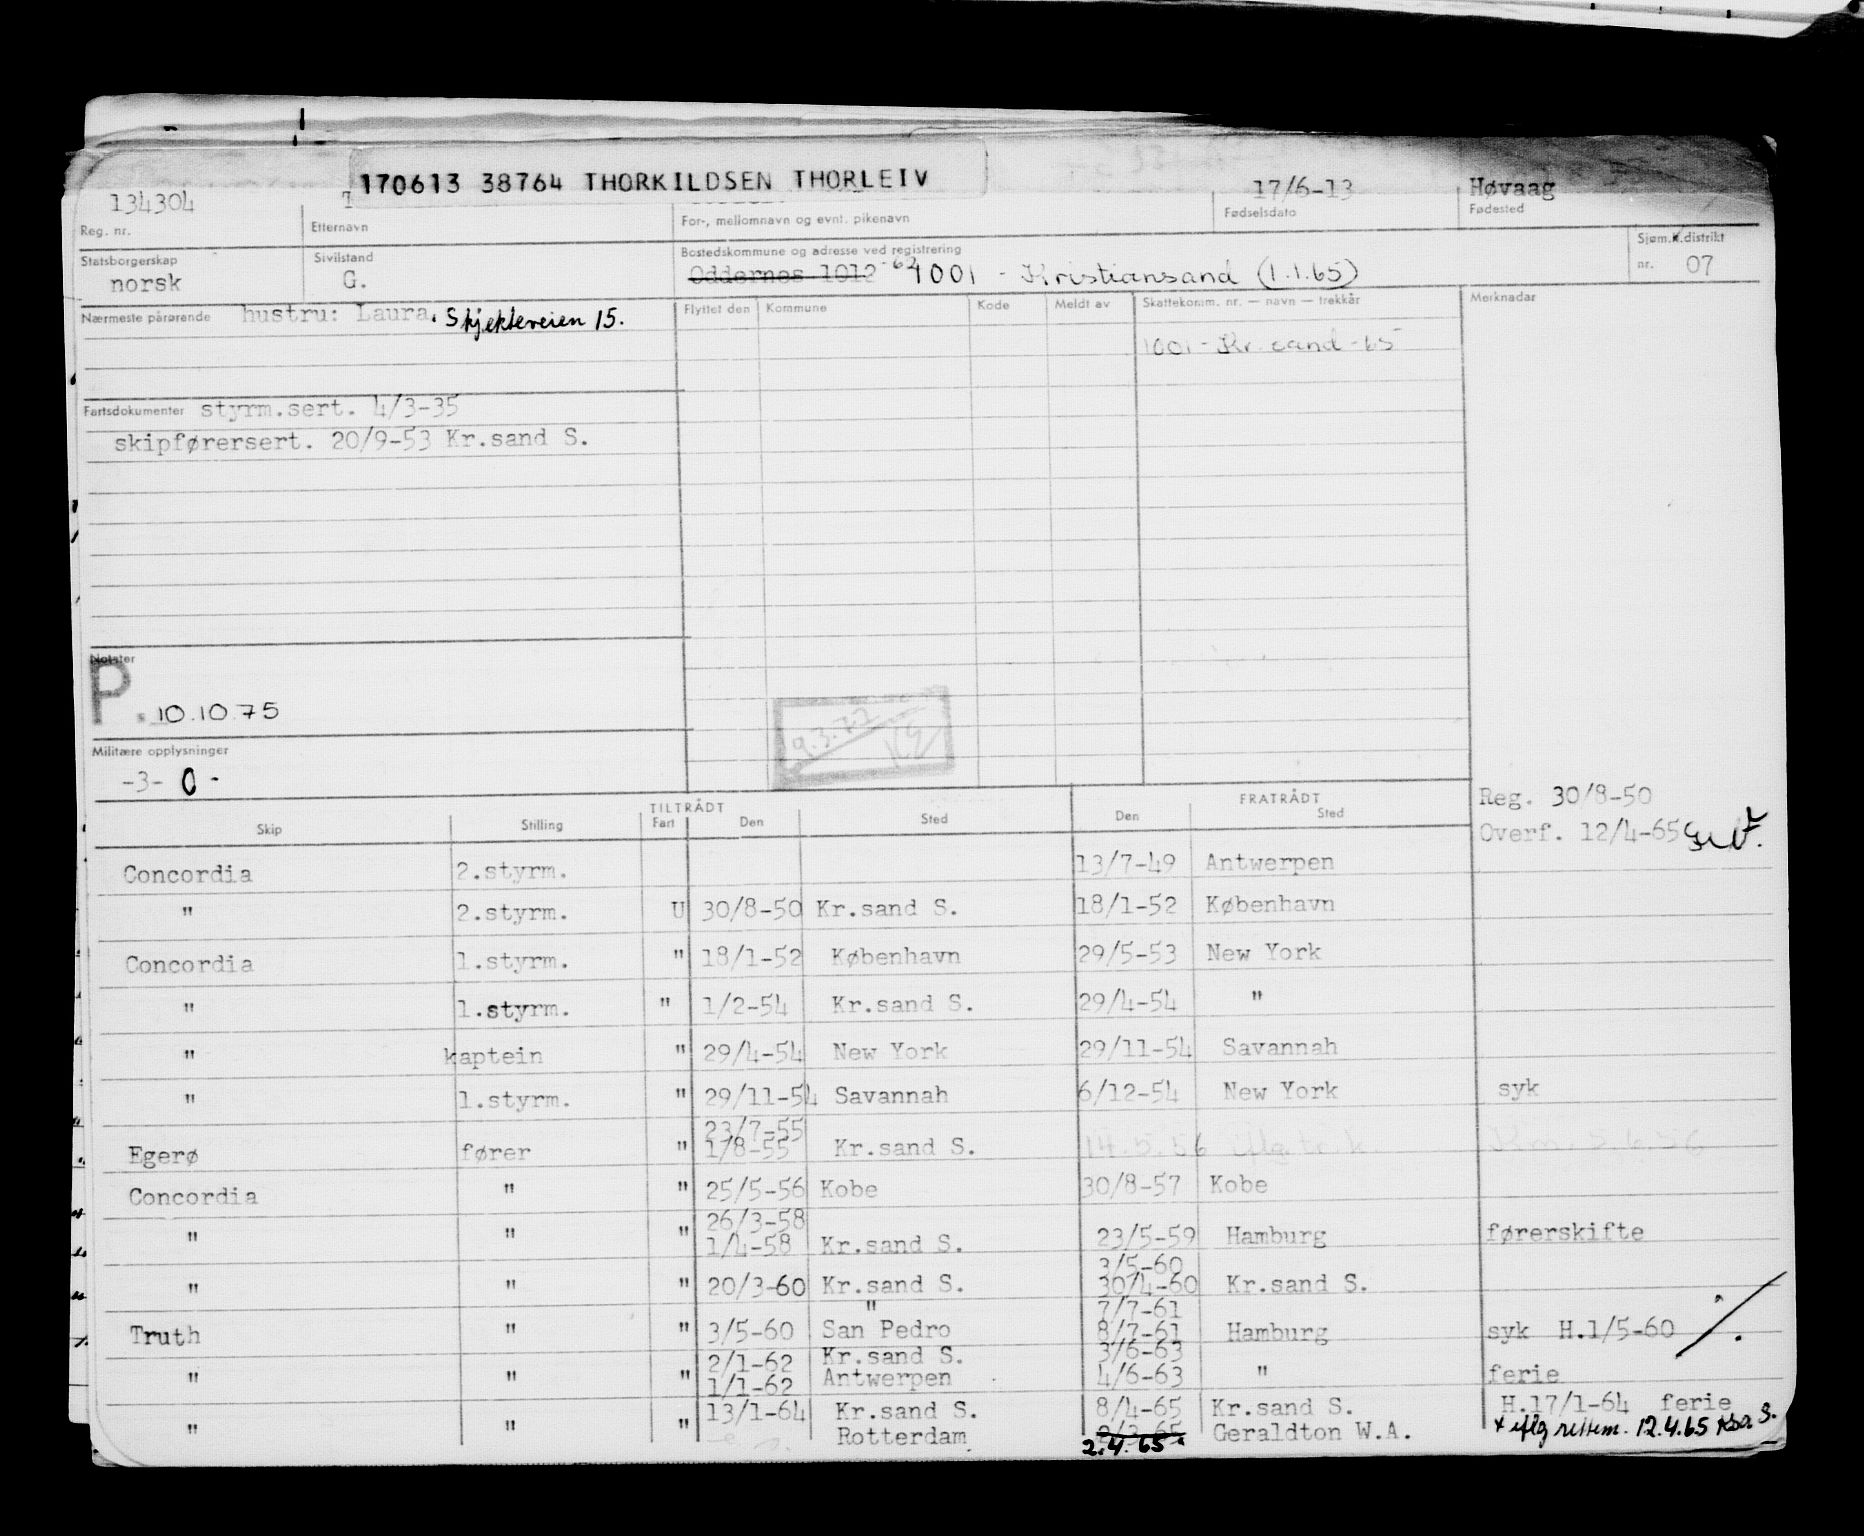 170613 38764 THORKILDSEN THORLEIV
134304 T 17/6-13 Høvaag
Reg. nr. Etternavn For-, mellomnavn og evnt. pikenavn Fødselsdato Fødested
Statsborgerskap Sivilstand Bostedskommune og adresse ved registrering Sjøm.k.distrikt
norsk G. Oddernes 1012 1001 - Kristiansand (1.1.65) nr. 07
Nærmeste pårørende hustru: Laura. Skjekteveien 15. Flyttet den Kommune Kode Meldt av Skattekomm. nr. — navn — trekkår Merknader
1001 - Kr.sand - 65
Fartsdokumenter styrm.sert. 4/3-35
skipførersert. 20/9-53 Kr.sand S.
Notater
P. 10.10.75
9.3.77
Militære opplysninger
-3- 0 -
Reg. 30/8-50
Overf. 12/4-65
TILTRÅDT FRATRÅDT
Skip Stilling Fart Den Sted Den Sted
Concordia 2.styrm. 13/7-49 Antwerpen
" 2.styrm. U 30/8-50 Kr.sand S. 18/1-52 København
Concordia 1.styrm. " 18/1-52 København 29/5-53 New York
" 1.styrm. " 1/2-54 Kr.sand S. 29/4-54 "
" kaptein " 29/4-54 New York 29/11-54 Savannah
" 1.styrm. " 29/11-54 Savannah 6/12-54 New York syk
23/7-55
Egerø fører " 1/8-55 Kr.sand S. 14.5.56
Concordia " " 25/5-56 Kobe 30/8-57 Kobe
26/3-58
" " " 1/4-58 Kr.sand S. 23/5-59 Hamburg førerskifte
3/5-60
" " " 20/3-60 Kr.sand S. 30/4-60 Kr.sand S.
" 7/7-61
Truth " " 3/5-60 San Pedro 8/7-61 Hamburg syk H.1/5-60
2/1-62 Kr.sand S. 3/6-63
" " " 1/1-62 Antwerpen 4/6-63 " ferie
13/1-64 Kr.sand S. 8/4-65 Kr.sand S. H.17/1-64 ferie
" " " Rotterdam 2/3-65 Geraldton W.A. x iflg rettem. 12.4.65 Kr.a. S.
2.4.65.